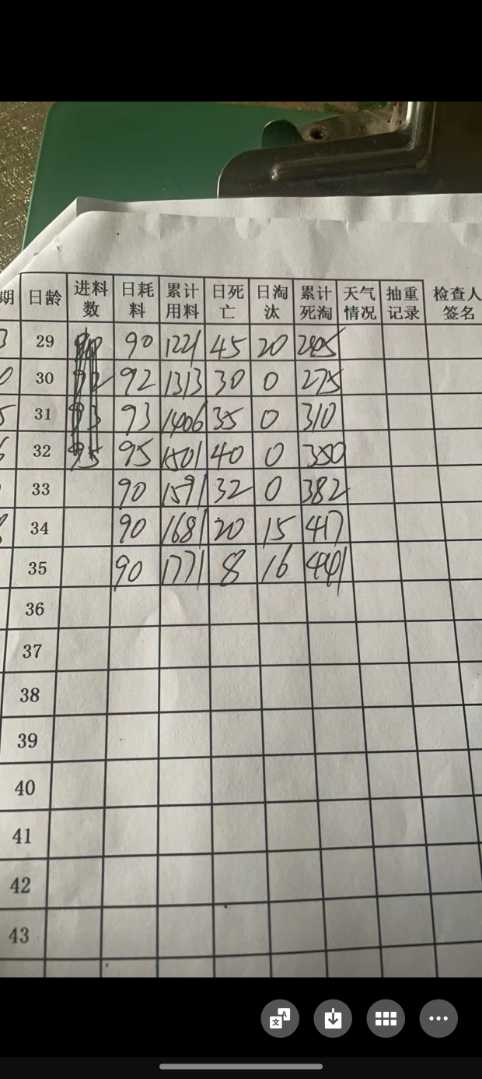 期 日龄 进料数 日耗料 累计用料 日死亡 日淘汰 累计死淘 天气情况 抽重记录 检查人签名
29 90 1221 45 20 245
30 92 92 1313 30 0 275
31 93 93 1406 35 0 310
32 95 95 1501 40 0 350
33 90 1591 32 0 382
34 90 1681 20 15 417
35 90 1771 8 16 441
36
37
38
39
40
41
42
43